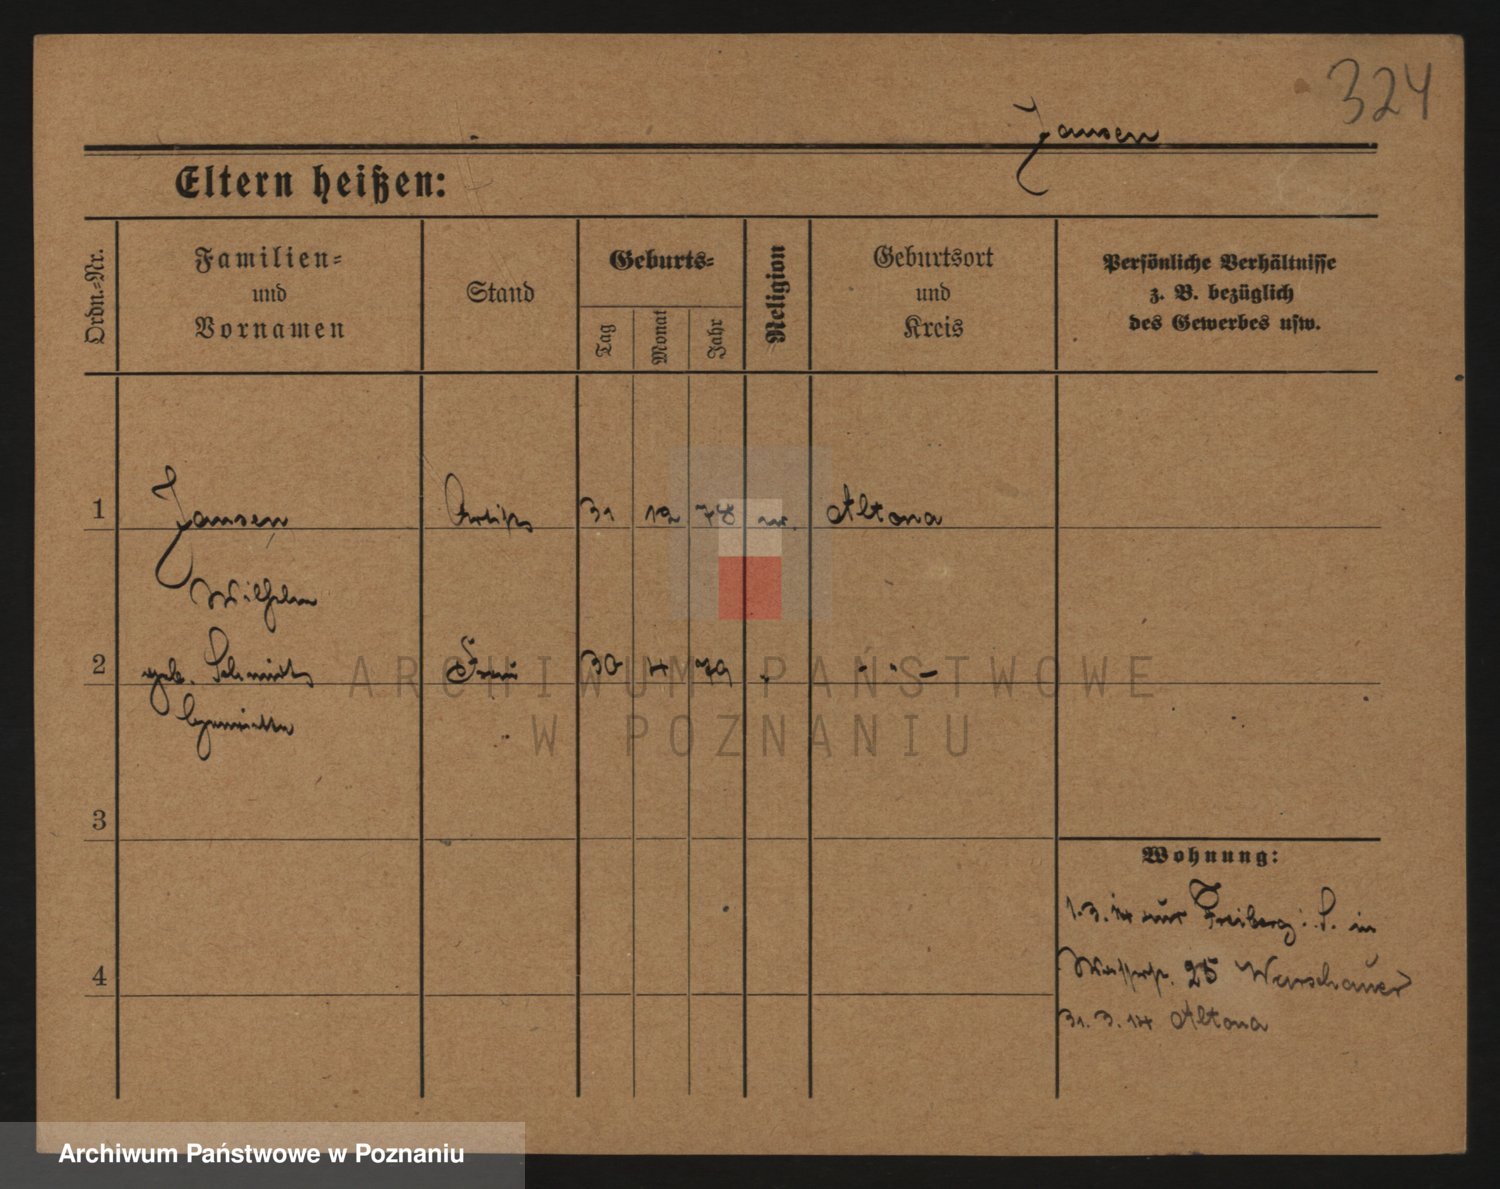 324
Jansen
Eltern heißen:
Ordn.-Nr.
Familien-
und
Vornamen
Stand
Geburts-
Tag
Monat
Jahr
Religion
Geburtsort
und
Kreis
Persönliche Verhältnisse
z. B. bezüglich
des Gewerbes usw.
1 Jansen Artist 31 12 78 Altona
Wilhelm
2 geb. Schmidt Frau 30 4 79 " " –
3
Wohnung:
1.3.14 aus Freiberg i. S. in
25 Warschauer
4
31.3.14 Altona
ARCHIWUM PAŃSTWOWE
W POZNANIU
Archiwum Państwowe w Poznaniu